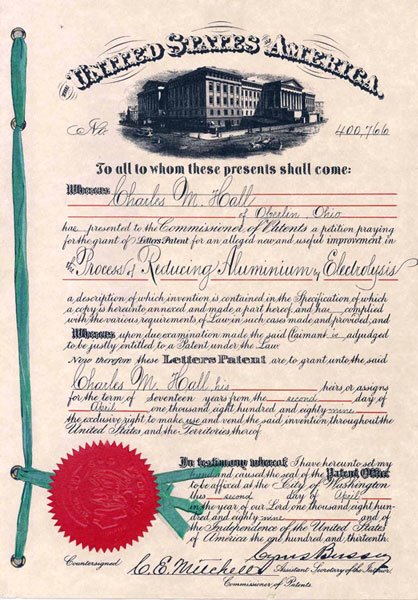 THE UNITED STATES OF AMERICA,
No. 400,766
To all to whom these presents shall come:
Whereas Charles M. Hall
of Oberlin, Ohio
has presented to the Commissioner of Patents a petition praying
for the grant of Letters Patent for an alleged new and useful improvement in
the Process of Reducing Aluminium by Electrolysis
a description of which invention is contained in the Specification of which
a copy is hereunto annexed and made a part hereof, and has complied
with the various requirements of Law in such cases made and provided, and
Whereas upon due examination made the said Claimant is adjudged
to be justly entitled to a Patent under the Law.
Now therefore these Letters Patent are to grant unto the said
Charles M. Hall, his heirs or assigns
for the term of seventeen years from the second day of
April one thousand eight hundred and eighty nine
the exclusive right to make use and vend the said invention throughout the
United States and the Territories thereof.
In testimony whereof I have hereunto set my
hand and caused the seal of the Patent Office
to be affixed at the City of Washington
this second day of April
in the year of our Lord one thousand eight hun-
dred and eighty nine and of
the Independence of the United States
of America the one hundred and thirteenth.
Cyrus Bussey
Countersigned C. E. Mitchell Assistant Secretary of the Interior.
Commissioner of Patents.